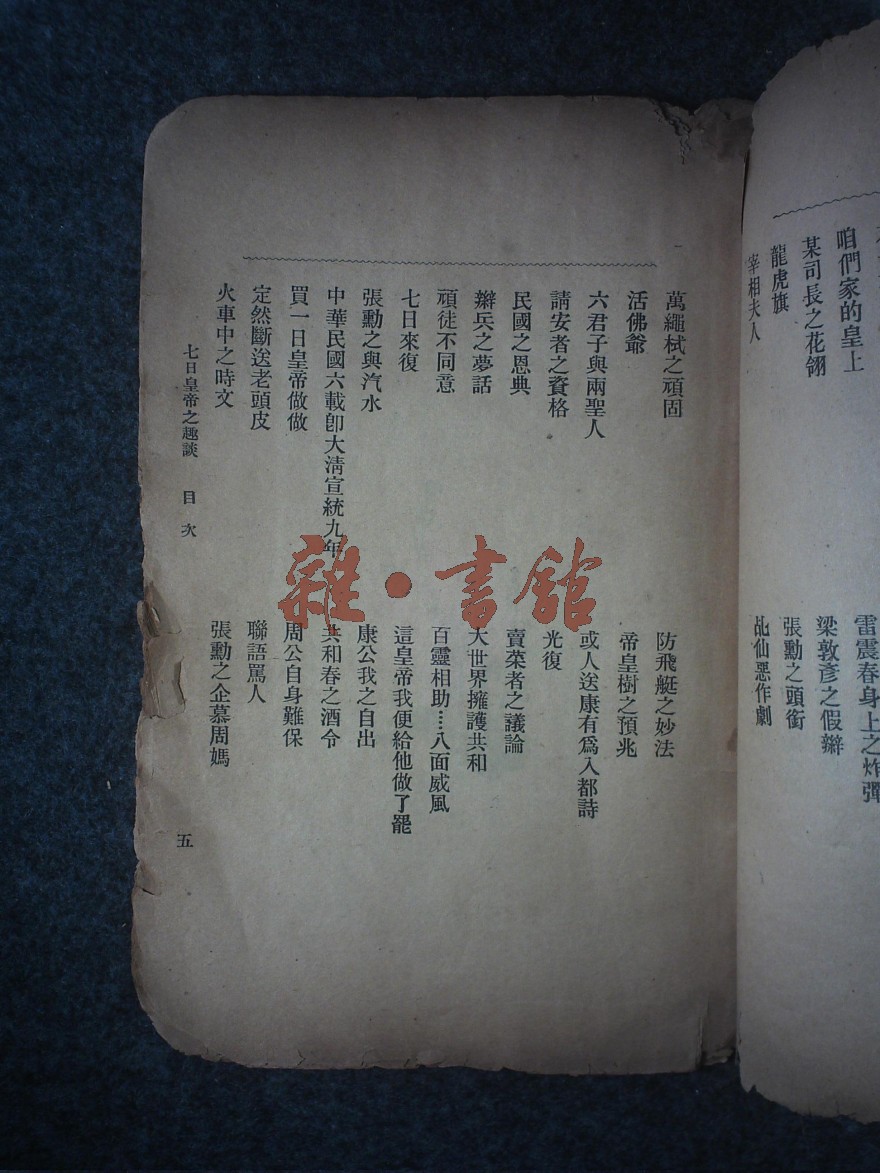 咱們家的皇上
某司長之花翎
龍虎旗
宰相夫人
雷震春身上之炸彈
梁敦彥之假辮
張勳之頭銜
乩仙惡作劇
萬繩栻之頑固
活佛爺
六君子與兩聖人
請安者之資格
民國之恩典
辮兵之夢話
頑徒不同意
七日來復
張勳之與汽水
中華民國六載卽大淸宣統九年
買一日皇帝做做
定然斷送老頭皮
火車中之時文
防飛艇之妙法
帝皇樹之預兆
或人送康有爲入都詩
光復
賣菜者之議論
大世界擁護共和
百靈相助....八面威風
這皇帝我便給他做了罷
康公我之自出
共和春之酒令
周公自身難保
聯語罵人
張勳之企慕周媽
七日皇帝之趣談 目次
五
雜·書館